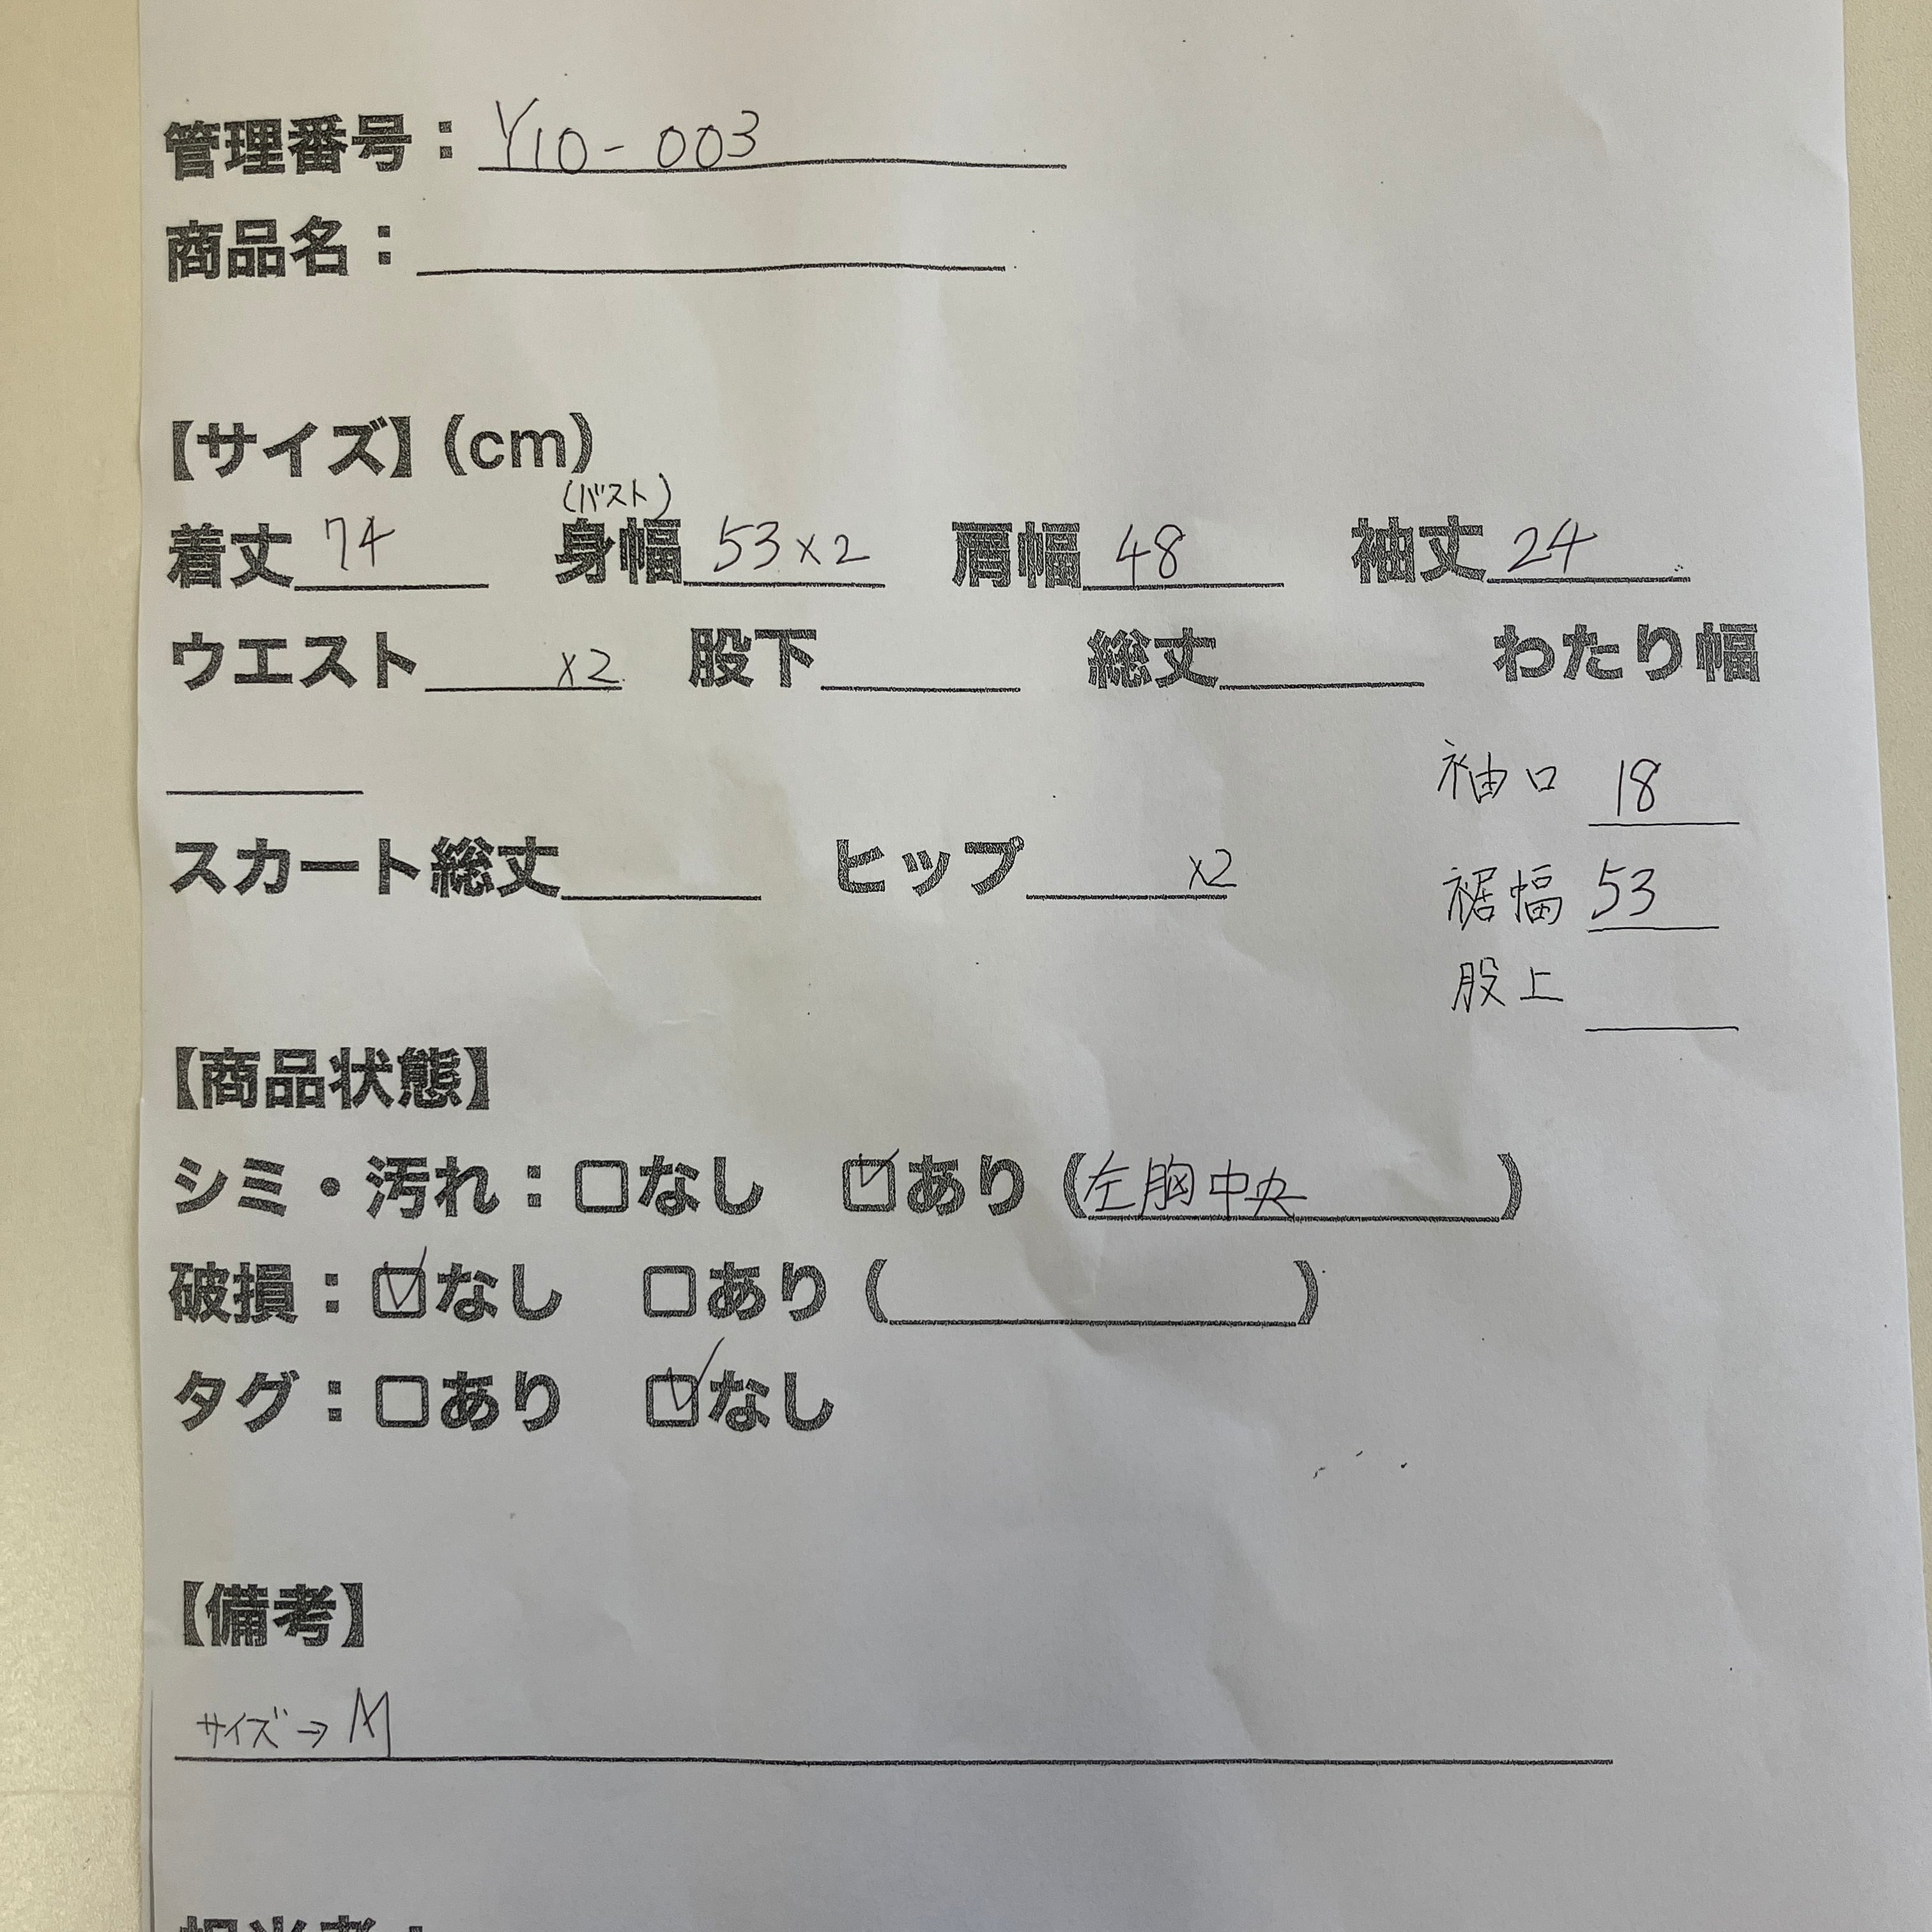 管理番号：Y10-003
商品名：
【サイズ】(cm)
(バスト)
着丈 74 身幅 53×2 肩幅 48 袖丈 24
ウエスト ×2 股下 総丈 わたり幅
袖口 18
スカート総丈 ヒップ ×2
裾幅 53
股上
【商品状態】
シミ・汚れ：□なし ☑あり (左胸中央)
破損：☑なし □あり ( )
タグ：□あり ☑なし
【備考】
サイズ→M
担当者：